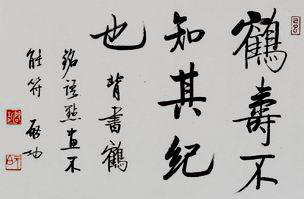 鶴壽不
知其紀
也 背書鶴
銘語點畫不
能符 啟功